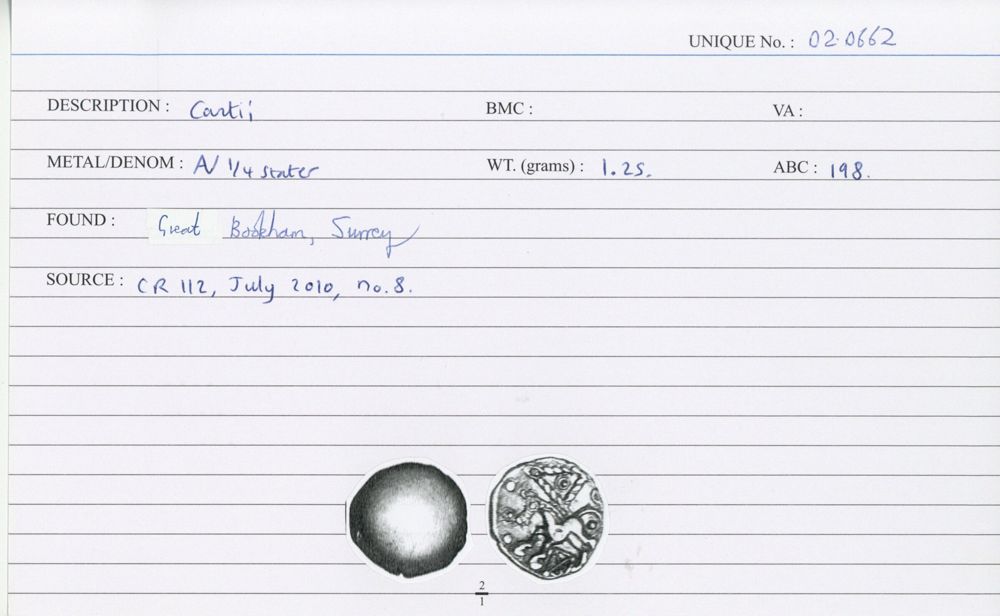 UNIQUE No. : 02.0662
DESCRIPTION : Cantii BMC : VA :
METAL/DENOM : AV 1/4 stater WT. (grams) : 1.25. ABC : 198.
FOUND : Great Bookham, Surrey
SOURCE : CR 112, July 2010, no. 8.
2
1